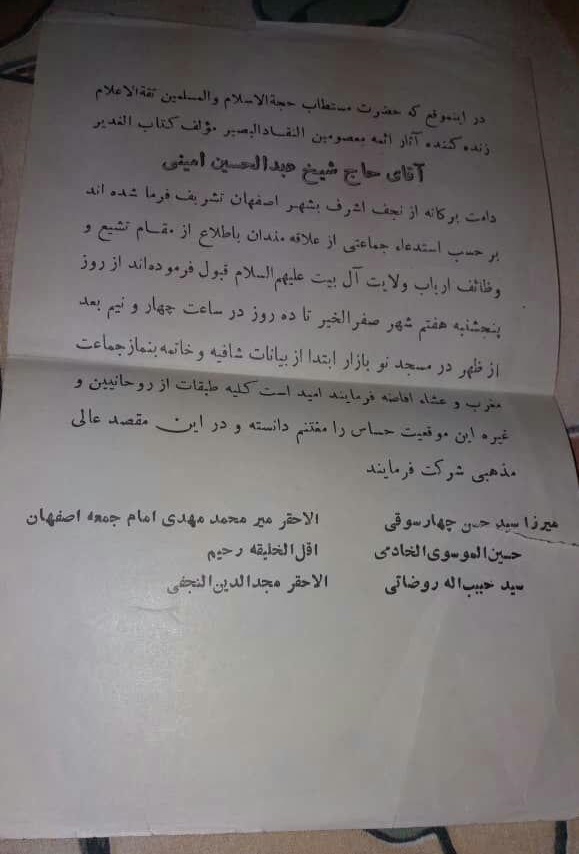 در اینموقع که حضرت مستطاب حجةالاسلام والمسلمین ثقةالاعلام
زنده کننده آثار ائمه معصومین النقادالبصیر مؤلف کتاب الغدیر
آقای حاج شیخ عبدالحسین امینی
دامت برکاته از نجف اشرف بشهر اصفهان تشریف فرما شده اند
بر حسب استدعاء جماعتی از علاقه مندان باطلاع از مقام تشیع و
وظائف ارباب ولایت آل بیت علیهم‌السلام قبول فرموده‌اند از روز
پنجشنبه هفتم شهر صفرالخیر تا ده روز در ساعت چهار و نیم بعد
از ظهر در مسجد نو بازار ابتدا از بیانات شافیه و خاتمه بنماز جماعت
مغرب و عشاء افاضه فرمایند امید است کلیه طبقات از روحانیین و
غیره این موقعیت حساس را مغتنم دانسته و در این مقصد عالی
مذهبی شرکت فرمایند
میرزا سید حسن چهارسوقی الاحقر میر محمد مهدی امام جمعه اصفهان
حسین الموسوی الخادمی اقل الخلیقه رحیم
سید حبیب‌اله روضاتی الاحقر مجدالدین النجفی